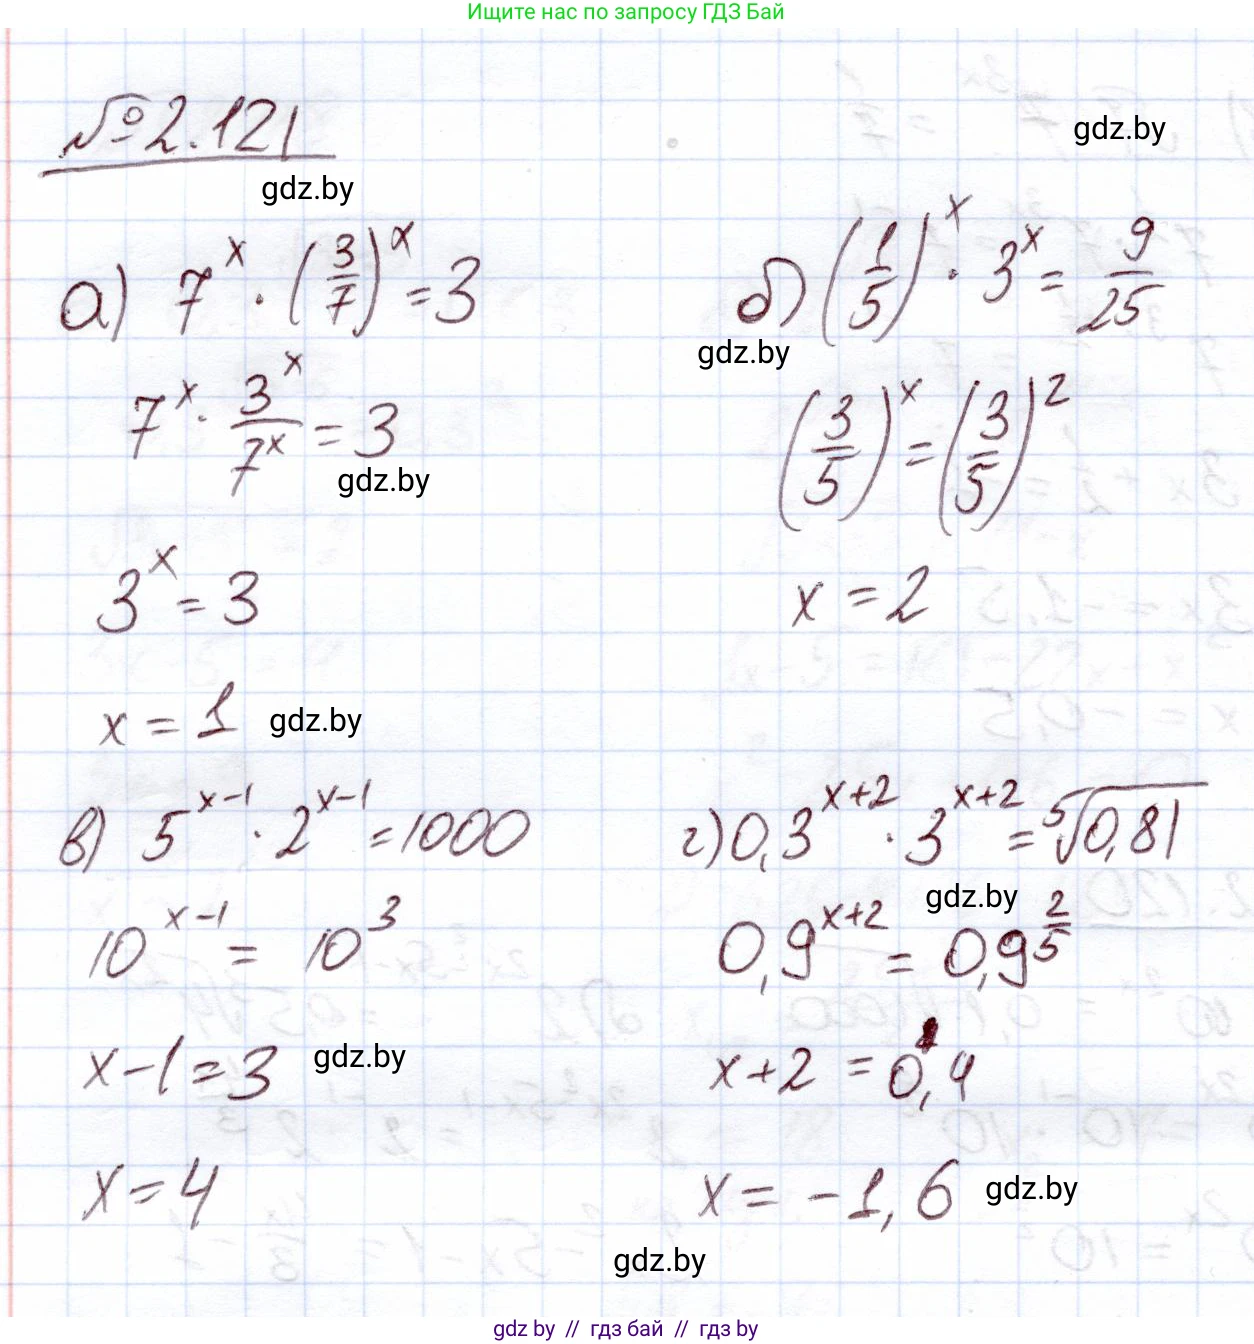 Ищите нас по запросу ГДЗ Бай
№2.121
gdz.by
gdz.by
а) 7^x · (3/7)^x = 3
7^x · 3^x/7^x = 3
gdz.by
3^x = 3
x = 1 gdz.by
б) (1/5)^x · 3^x = 9/25
gdz.by
(3/5)^x = (3/5)^2
x = 2
в) 5^(x-1) · 2^(x-1) = 1000
10^(x-1) = 10^3
x-1=3 gdz.by
x=4
г) 0,3^(x+2) · 3^(x+2) = ⁵√0,81
gdz.by
0,9^(x+2) = 0,9^(2/5)
x+2 = 0,4
x = -1,6 gdz.by
gdz.by
gdz by // гдз бай // гдз by